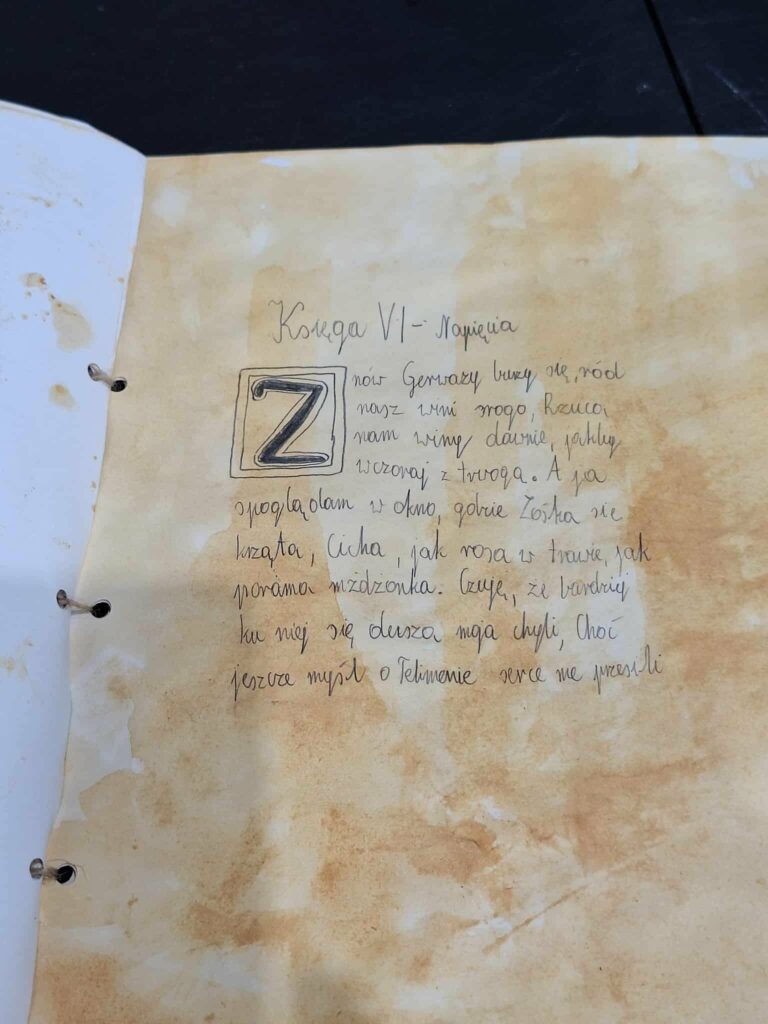 Księga VI - Napięcia
Znów Gerwazy burzy się, ród
nasz wini srogo, Rzuca
nam winy dawne, jakby
wczoraj z trwogą. A ja
spoglądam w okno, gdzie Zośka się
krząta, Cicha, jak rosa w trawie, jak
poranna Czuję, że bardziej
ku niej się dusza moja chyli, Choć
jeszcze myśl o Telimenie serce me